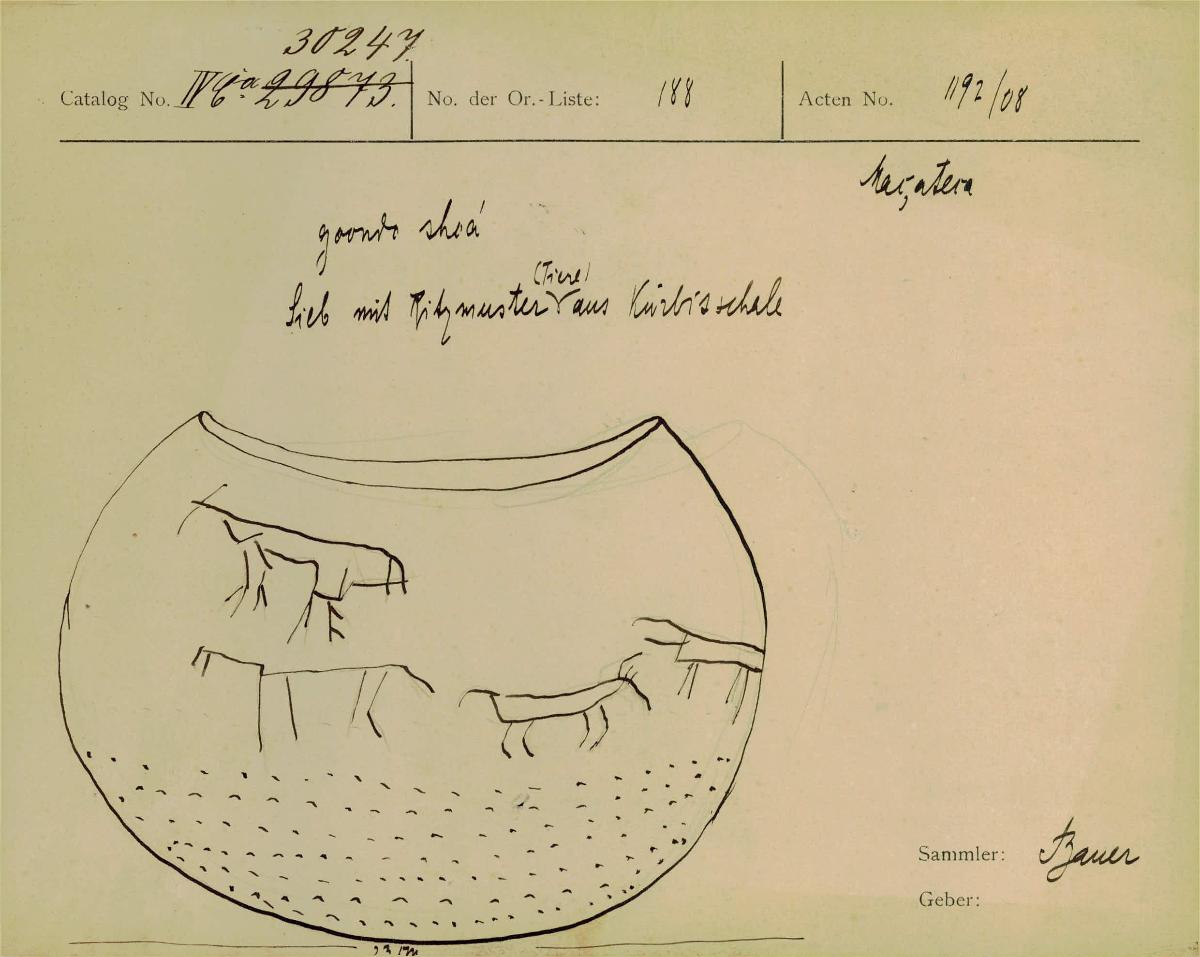 30247
Catalog No. IV Ca 29873. No. der Or.-Liste: 188 Acten No. 1192/08
Maçateca
goondo shoá
(Tiere)
Sieb mit Ritzmuster aus Kürbisschale
Sammler: Bauer
Geber: